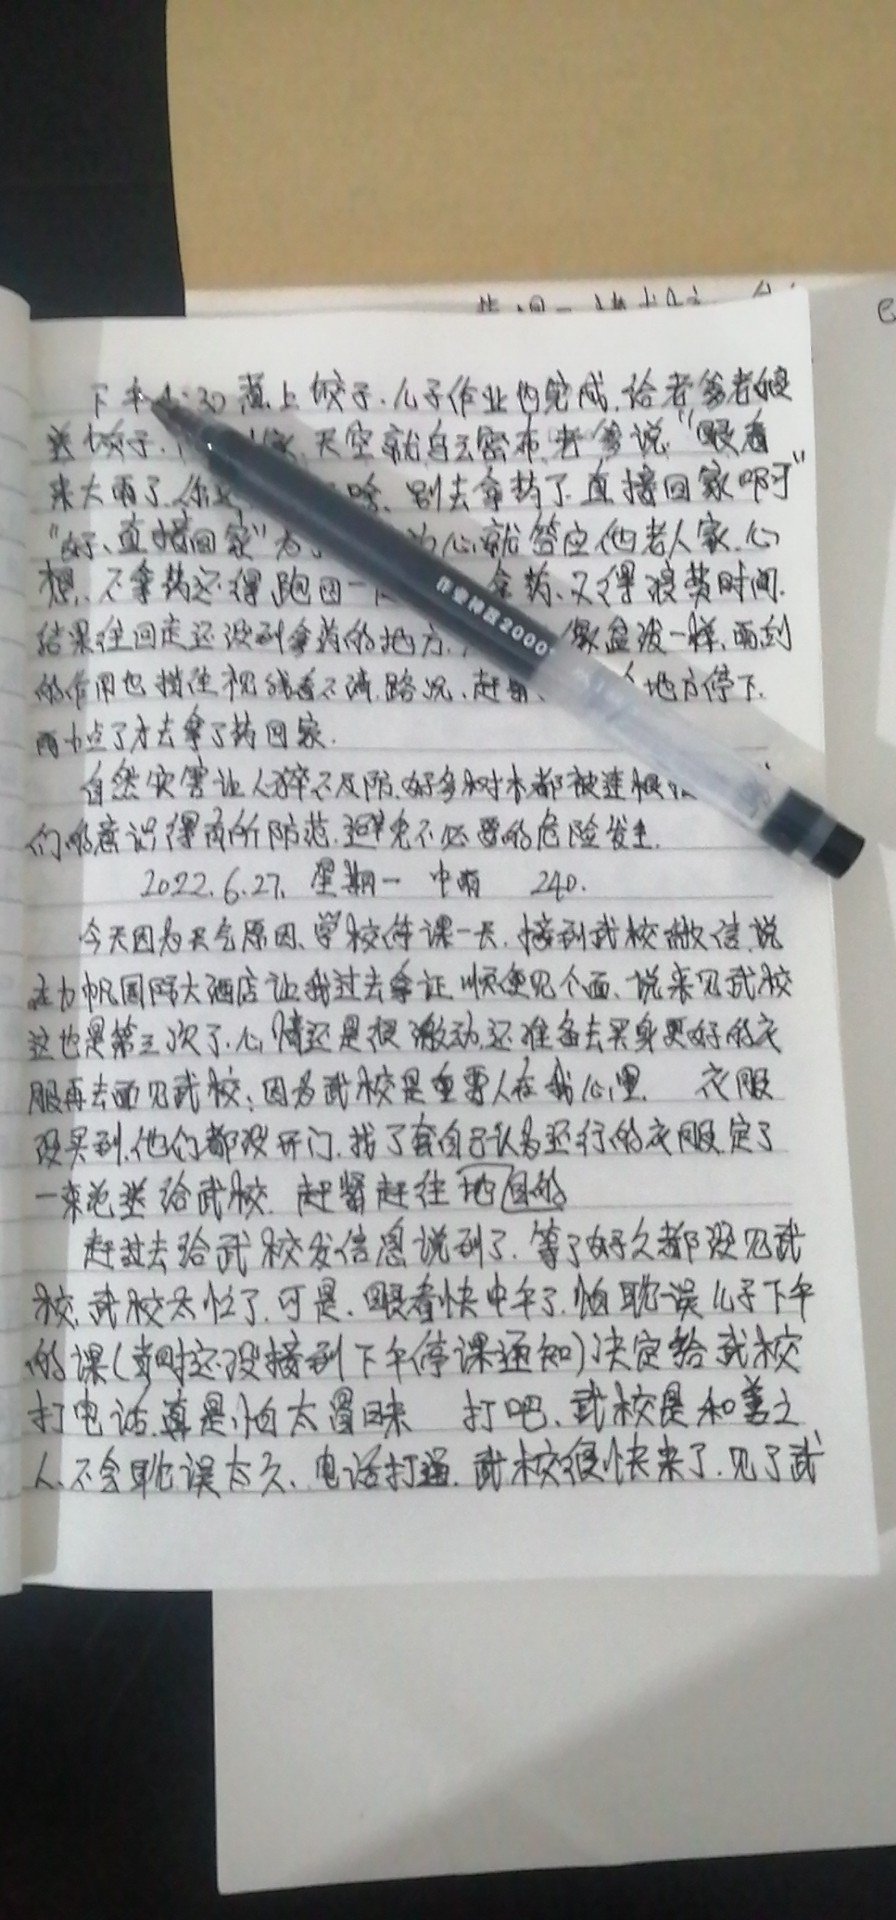 下午4:30煮上饺子.儿子作业也完成.给老爹老娘
送饺子.天空就乌云密布.老爹说"眼看
来大雨了.你啥.别去拿药了.直接回家啊"
"好、直接回家"为心就答应他老人家.心
想.不拿药还得跑回一拿药、又得浪费时间.
结果往回走还没到拿药的地方.像盆泼一样、雨刮
的作用也挡住视线看不清路况、赶地方停下.
雨小点了才去拿了药回家.
自然灾害让人猝不及防.好多树木都被连根
们的意识得有所防范.避免不必要的危险发生.
2022.6.27. 星期一 中雨 240.
今天因为天气原因、学校停课一天.接到武校微信.说
在力帆国际大酒店让我过去拿证.顺便见个面、说来见武校
这也是第三次了.心情还是很激动.还准备去买身更好的衣
服再去面见武校.因为武校是重要人在我心里. 衣服
没买到.他们都没开门.找了套自己认为还行的衣服.定了
一束花送给武校. 赶紧赶往地目的
赶过去给武校发信息说到了.等了好久都没见武
校.武校太忙了.可是.眼看快中午了.怕耽误儿子下午
的课(当时还没接到下午停课通知)决定给武校
打电话.真是怕太冒昧 打吧、武校是和善之
人.不会耽误太久、电话打通.武校很快来了.见了武
作业神器2000